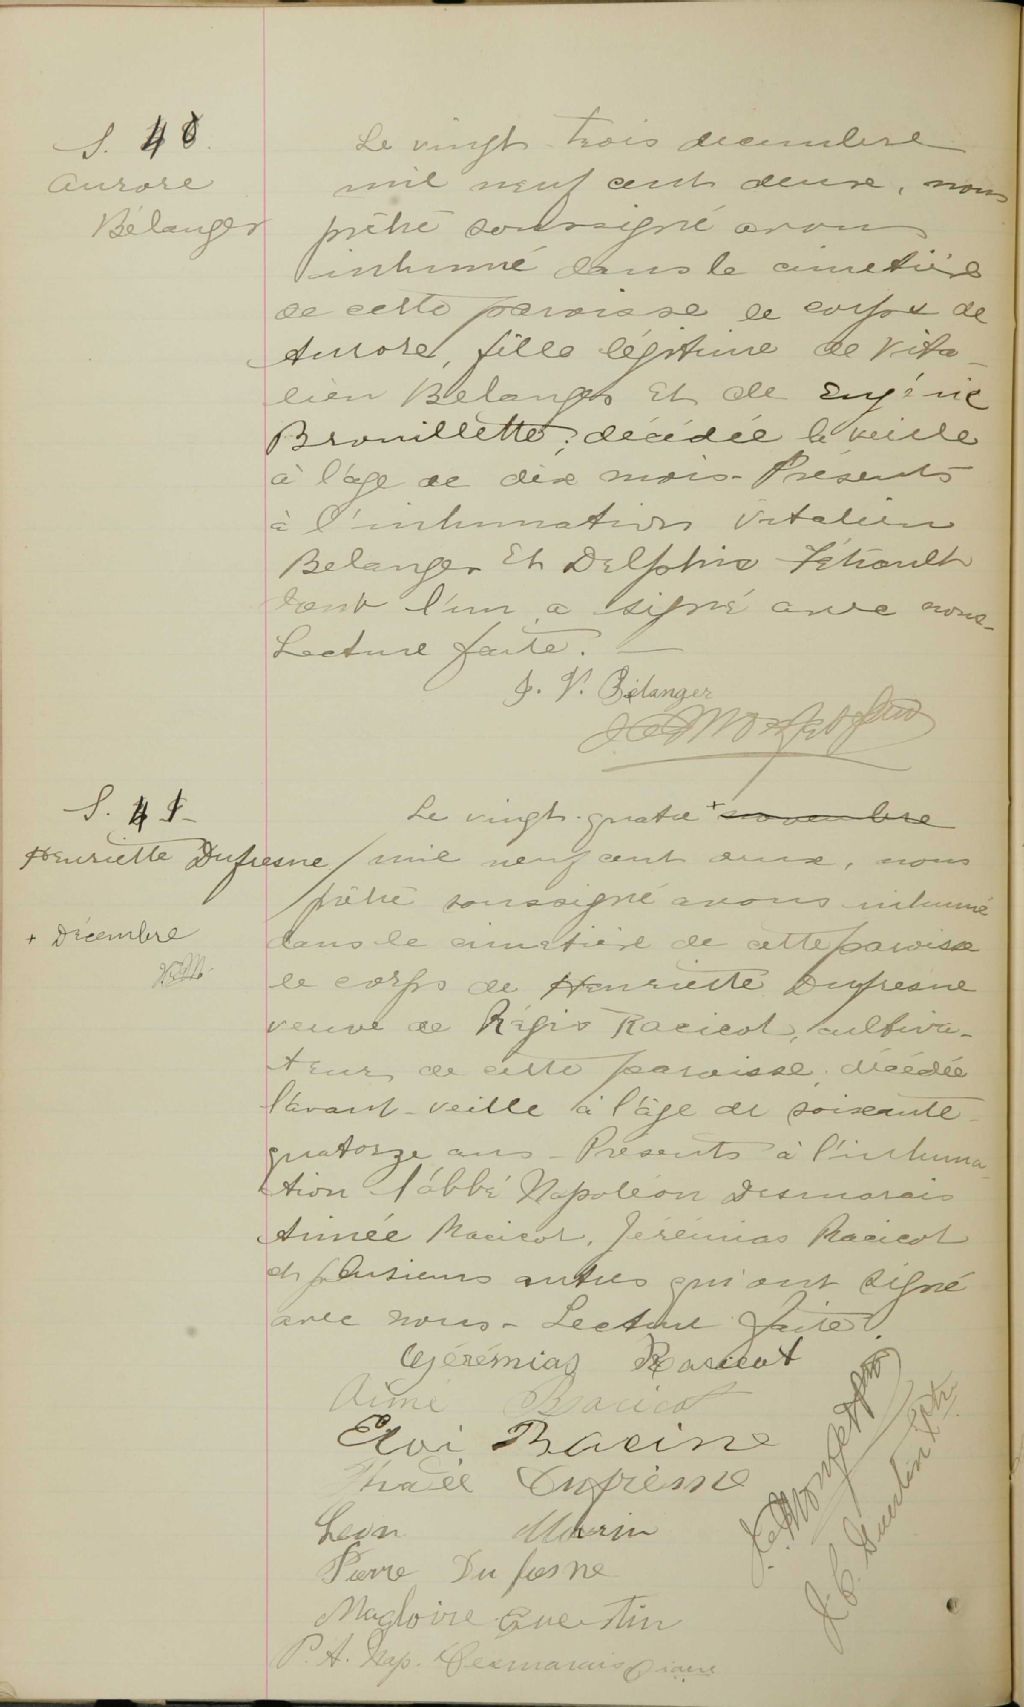 S. 40.
Aurore
Bélanger
Le vingt trois decembre
mil neuf cent deux, nous
prêtre soussigné avons
inhumé dans le cimetière
de cette paroisse le corps de
Aurore, fille légitime de Vita-
lien Belanger Et de Eugénie
Brouillette; décédée la veille
à l'âge de dix mois - Présents
à l'inhumation Vitalien
Belanger Et Delphis Tétrault
dont l'un a signé avec nous-
Lecture faite. —
J. V. Bélanger
S. 41-
Henriette Dufresne
+ Décembre
Le vingt-quatre + novembre
mil neuf cent deux, nous
prêtre soussigné avons inhumé
dans le cimetière de cette paroisse
le corps de Henriette Dufresne
veuve de Régis Racicot, cultiva-
teur de cette paroisse, décédée
l'avant-veille à l'âge de soixante-
quatorze ans - Présents à l'inhuma-
tion l'abbé Napoléon Desmarais
Aimée Racicot, Jérémias Racicot
et plusieurs autres qui ont signé
avec nous - Lecture faite.
Jérémias Racicot
Aimé Racicot
Eloi Racine
Dufresne
Leon Morin
Pierre Dufresne
Magloire Guertin
P. A. Nap. Desmarais Diacre
J. C. Guertin Ptr.